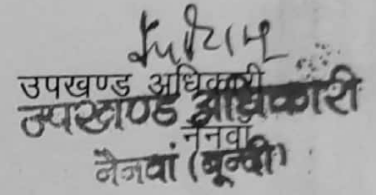 उपखण्ड अधिकारी
उपखण्ड अधिकारी
नैनवा
नैनवां (बून्दी)